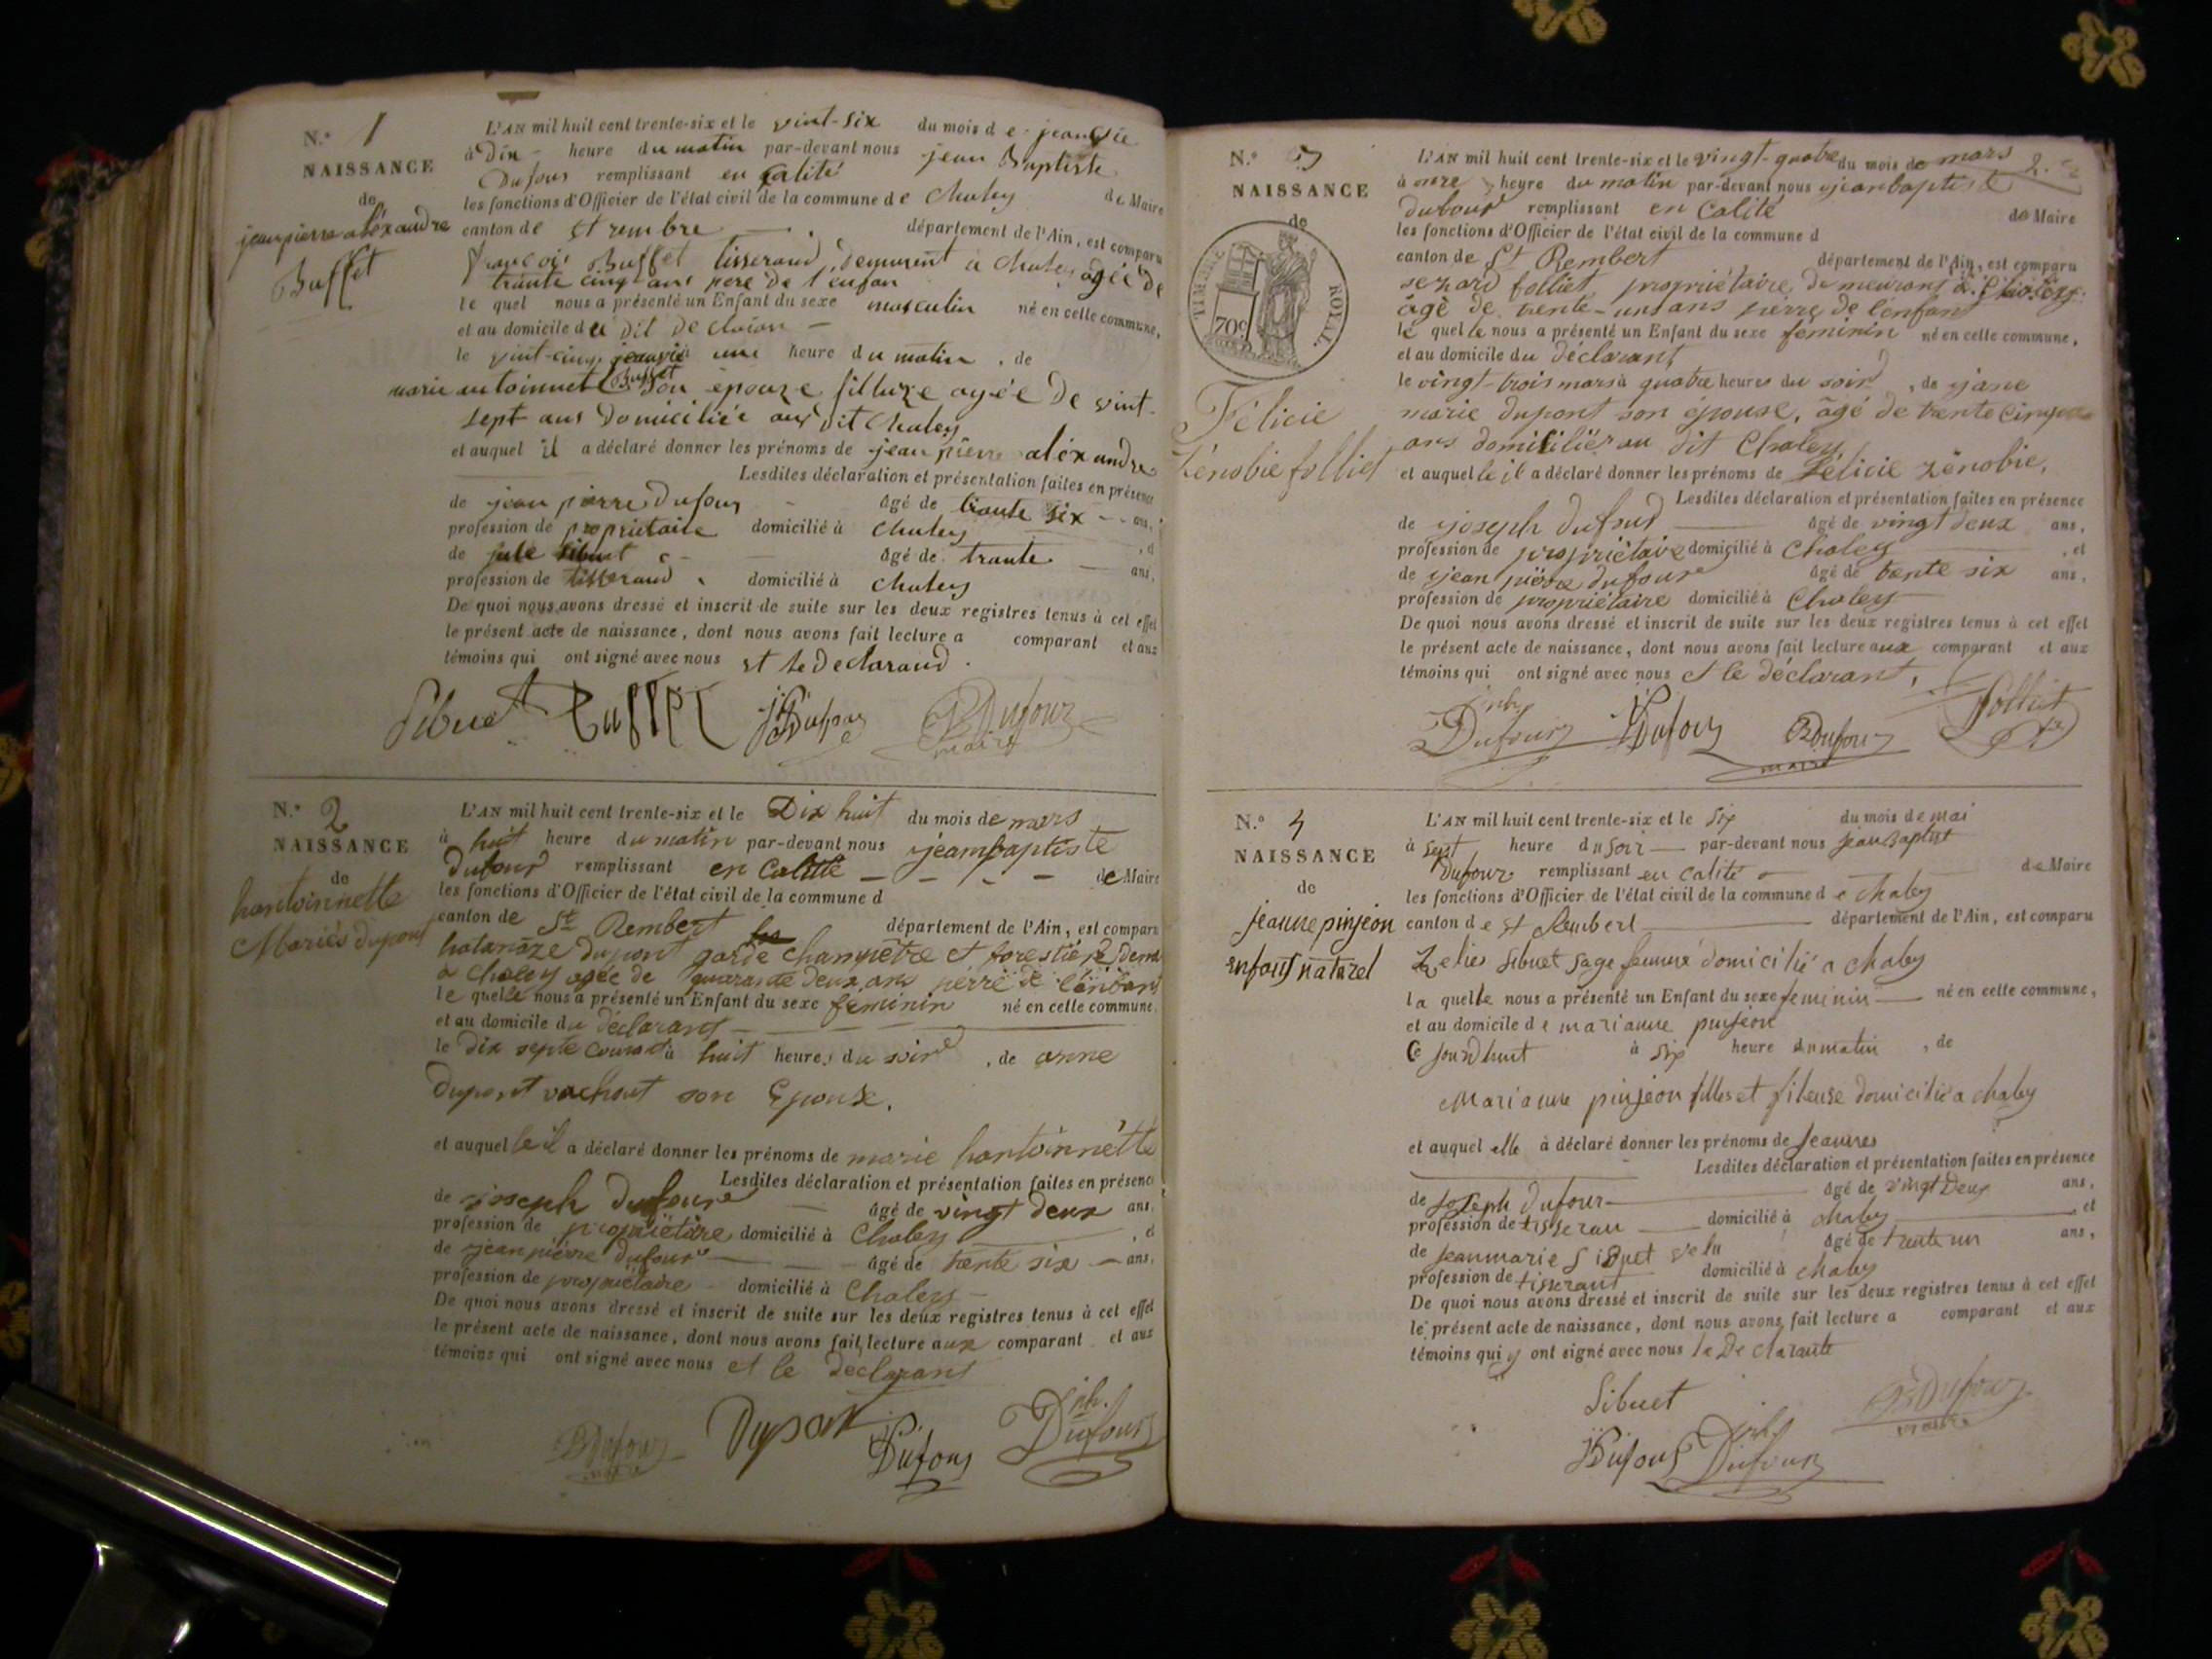 N.° 1
NAISSANCE
de
jean pierre aléxandre
Buffet
L'AN mil huit cent trente-six et le vint-six du mois de
à Dix heure du matin par-devant nous jean Baptiste
Dufour remplissant en calité
les fonctions d'Officier de l'état civil de la commune de Chaley de Maire
canton de st rembre département de l'Ain, est comparu
françois Buffet tisserand, demurent a Chaley agée de
trante cinq ans pere de l'enfan
le quel nous a présenté un Enfant du sexe masculin né en celle commune,
et au domicile du dit
le vint-cinq une heure du matin, de
marie entoinnet Buffet son épouze filluze agée De vint-
sept ans Domiciliée aux dit Chaley
et auquel il a déclaré donner les prénoms de jean pierre aléxandre
Lesdites déclaration et présentation faites en présence
de jean pierre Dufour âgé de trante six ans,
profession de propriétaire domicilié à Chaley
de jule sibuet âgé de trante ans,
profession de tisserand domicilié à Chaley
De quoi nous avons dressé et inscrit de suite sur les deux registres tenus à cet effet
le présent acte de naissance, dont nous avons fait lecture a comparant et aux
témoins qui ont signé avec nous et le Declaraud.
Sibuet Buffet JP Dufour JB Dufour
maire
N.° 2
NAISSANCE
de
hantoinnette
Mariés dupont
L'AN mil huit cent trente-six et le Dix huit du mois de mars
à huit heure du matin par-devant nous jeambaptiste
dufour remplissant en Calité de Maire
les fonctions d'Officier de l'état civil de la commune d
canton de St Rembert département de l'Ain, est comparu
hatanaze dupont garde Champêtre et forestié
a Chaley agée de quarante deux ans pérre de l'énfant
le quelle nous a présenté un Enfant du sexe feminin né en celle commune,
et au domicile du déclarant
le dix septe courant à huit heures du soir, de anne
dupont vachout son Epouse.
et auquel le il a déclaré donner les prénoms de marie hantoinnétte
Lesdites déclaration et présentation faites en présence
de joseph dufour âgé de vingt deux ans,
profession de propriétaire domicilié à Choley, et
de jean piérre dufour âgé de trente six ans,
profession de propriétaire domicilié à Choley
De quoi nous avons dressé et inscrit de suite sur les deux registres tenus à cet effet
le présent acte de naissance, dont nous avons fait lecture aux comparant et aux
témoins qui ont signé avec nous et le declarant
JB Dufour Dupont JP. Dufour Jph. Dufour
maire
N.° 3
NAISSANCE
de
TIMBRE ROYAL.
70c
Félicie
Zénobie folliet
L'AN mil huit cent trente-six et le vingt-quatre du mois de mars
à onze heure du matin par-devant nous jeanbaptiste
dufour remplissant en Calité de Maire
les fonctions d'Officier de l'état civil de la commune d
canton de St Rembert département de l'Ain, est comparu
folliet, propriétaire, demeurant à Choley
âgè de trente-un ans pièrre de l'enfant
le quel le nous a présenté un Enfant du sexe feminin né en celle commune,
et au domicile du déclarant
le vingt-trois mars à quatre heures du soir, de jane
marie dupont son épouse, âgé de trente cinque
ans domicilièr au dit Choley
et auquel le il a déclaré donner les prénoms de Félicie Zénobie,
Lesdites déclaration et présentation faites en présence
de joseph dufour âgé de vingt deux ans,
profession de propriétaire domicilié à Choley, et
de jean pièrre dufour âgé de trente six ans,
profession de propriétaire domicilié à Choley
De quoi nous avons dressé et inscrit de suite sur les deux registres tenus à cet effet
le présent acte de naissance, dont nous avons fait lecture aux comparant et aux
témoins qui ont signé avec nous et le déclarant,
Jph Dufour JP Dufour JB Dufour Folliet
maire
N.° 4
NAISSANCE
de
jeanne pinjeon
enfant naturel
L'AN mil huit cent trente-six et le six du mois de mai
à sept heure du soir par-devant nous jean baptist
Dufour remplissant en calité de Maire
les fonctions d'Officier de l'état civil de la commune de chaley
canton de st Rembert département de l'Ain, est comparu
Zelies sibuet sage femme domicilié a chaley
la quelle nous a présenté un Enfant du sexe feminin né en celle commune,
et au domicile de marianne pinjeon
Ce jourdhuit à six heure du matin, de
Marianne pinjeon filles et fileuse domicilié a chaley
et auquel elle à déclaré donner les prénoms de Jeannes
Lesdites déclaration et présentation faites en présence
de Joseph Dufour âgé de vingt Deux ans,
profession de tisseran domicilié à chaley, et
de Jeanmarie Sibuet âgé de trente un ans,
profession de tisserant domicilié à chaley
De quoi nous avons dressé et inscrit de suite sur les deux registres tenus à cet effet
le présent acte de naissance, dont nous avons fait lecture a comparant et aux
témoins qui y ont signé avec nous la De clarante
Sibuet JB Dufour
maire
JP Dufour Jph Dufour